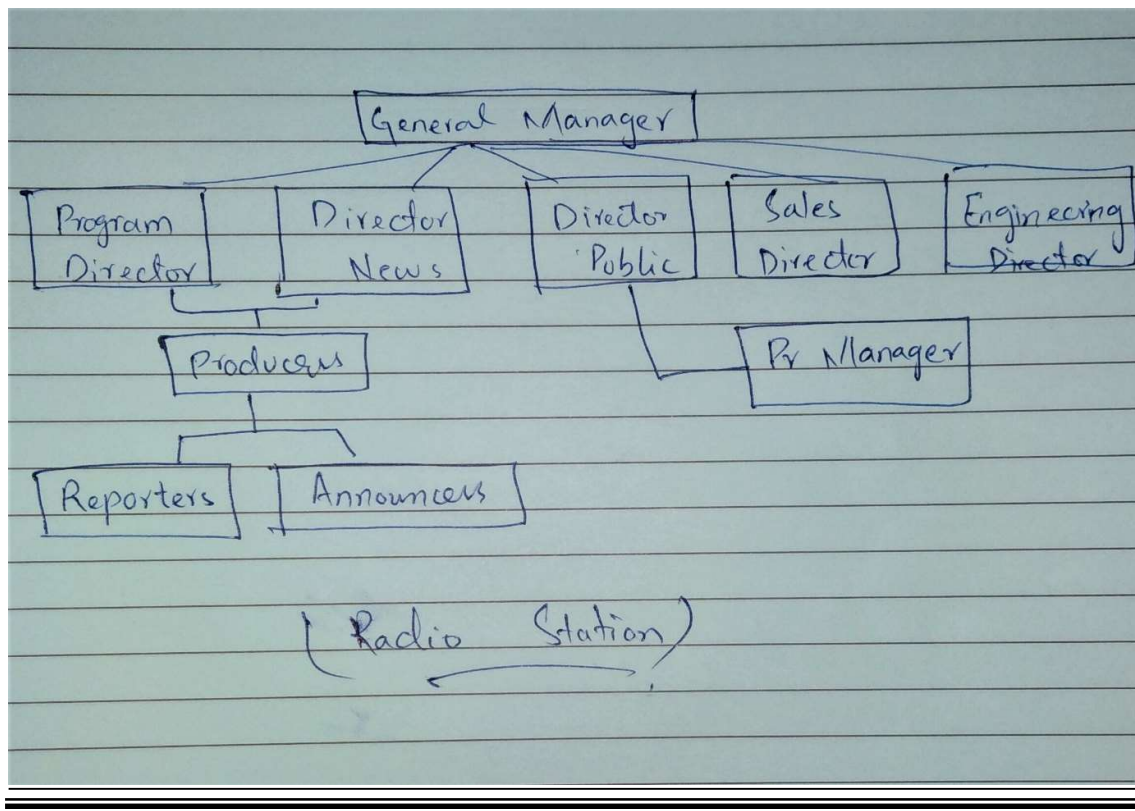 General Manager
Program
Director
Director
News
Director
Public
Sales
Director
Engineering
Director
Producers
Pr Manager
Reporters
Announcers
(Radio Station)